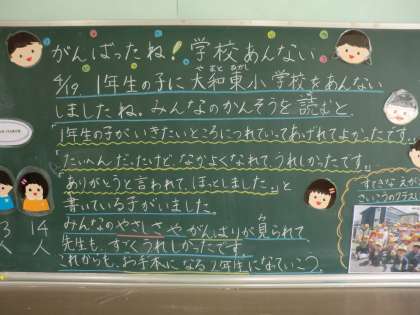 がんばったね!学校あんない
4/19 1年生の子に大和東小学校をあんない
やまと ひがし
しましたね。みんなのかんそうを読むと、
「1年生の子がいきたいところにつれていってあげれてよかったです。」
「たいへんだったけど、なかよくなれて、うれしかったです。」
「ありがとうと言われて、ほっとしました。」と
書いている子がいました。
みんなのやさしさやがんばりが見られて
先生も、すごくうれしかったです。
これからも、お手本になる2年生になっていこう。
3人
14人
すてきなえが
さいこうのクラス